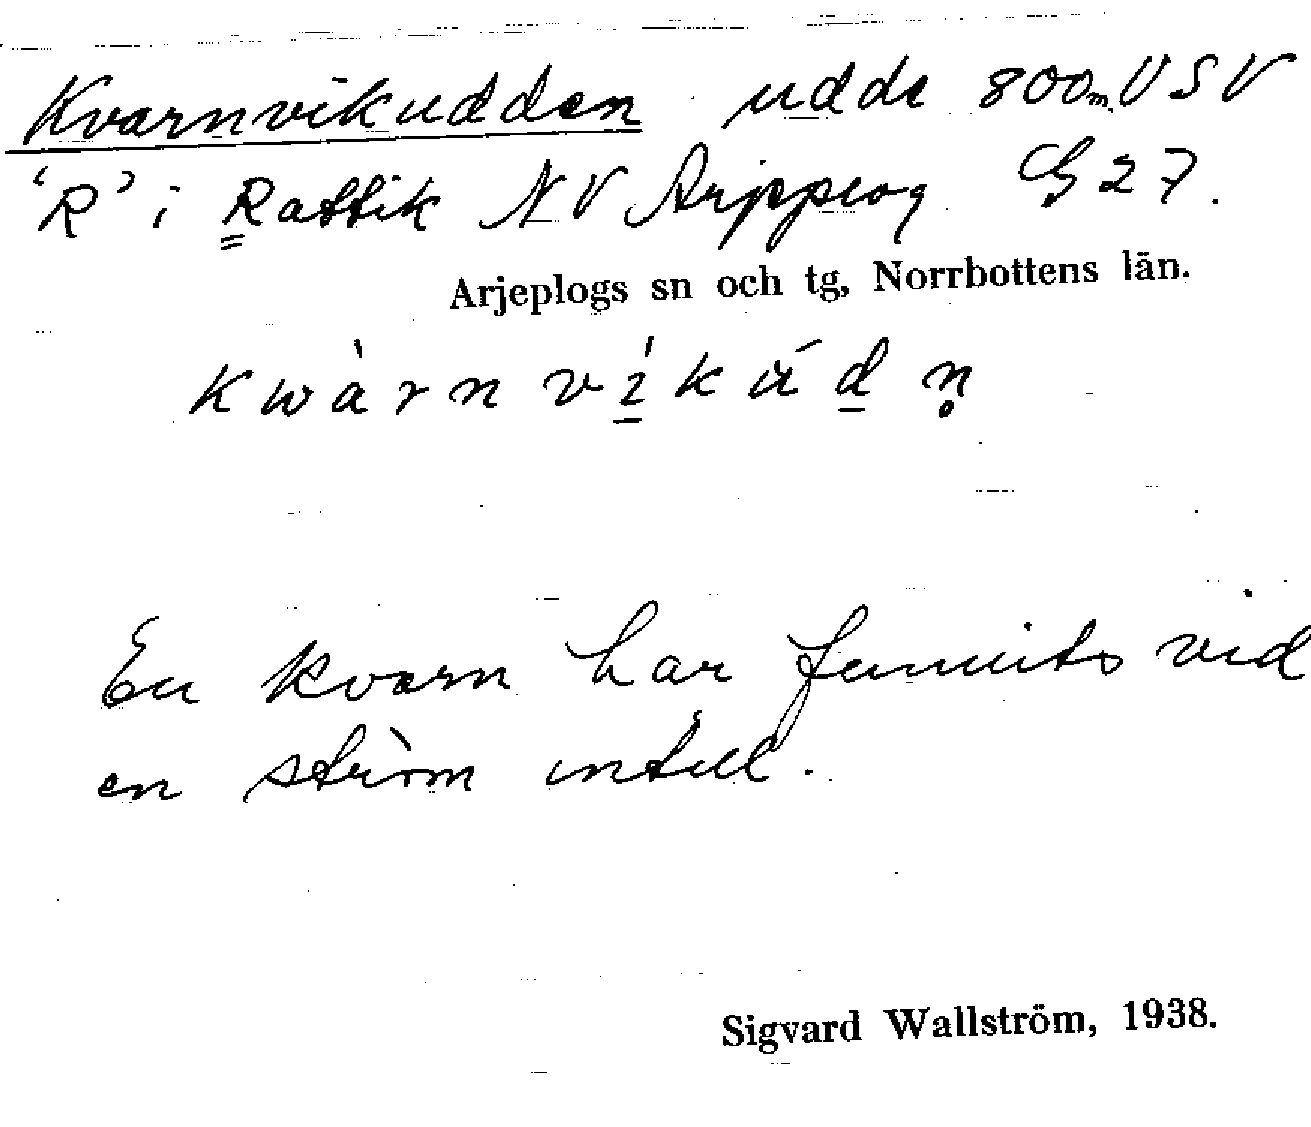 Kvarnvikudden udde 800m VSV
'R' i Rattik NV Arjeplog G 27.
Arjeplogs sn och tg, Norrbottens län.
kwàrnvíkúdn̥
En kvarn har funnits vid
en ström intill.
Sigvard Wallström, 1938.